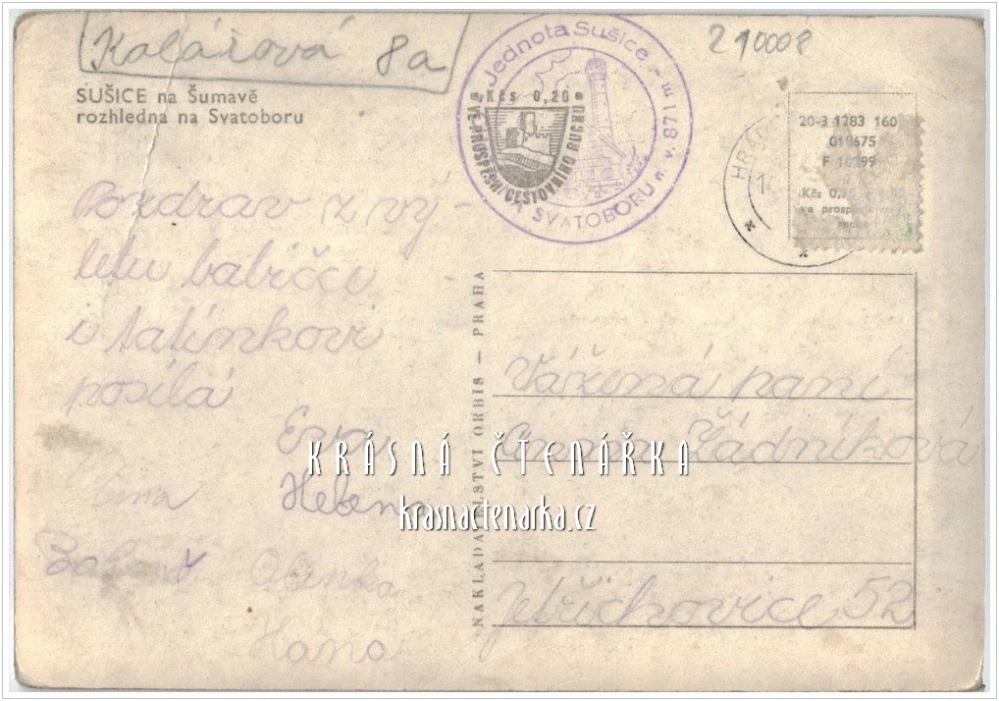 Kolářová 8a
210008
SUŠICE na Šumavě
rozhledna na Svatoboru
Jednota Sušice
SVATOBORU
Kčs 0,20
VE PROSPĚCH CESTOVNÍHO RUCHU
20-3 1283 160
F 10299
Kčs
ve prospěch
HRÁD
Pozdrav z vý-
letu babičce
i tatínkovi
posílá
Eva
Helena
Olinka
Hana
NAKLADATELSTVÍ ORBIS — PRAHA
Vážená paní
Anna Žádníková
Jetřichovice 52
KRÁSNÁ ČTENÁŘKA
krasnactenarka.cz